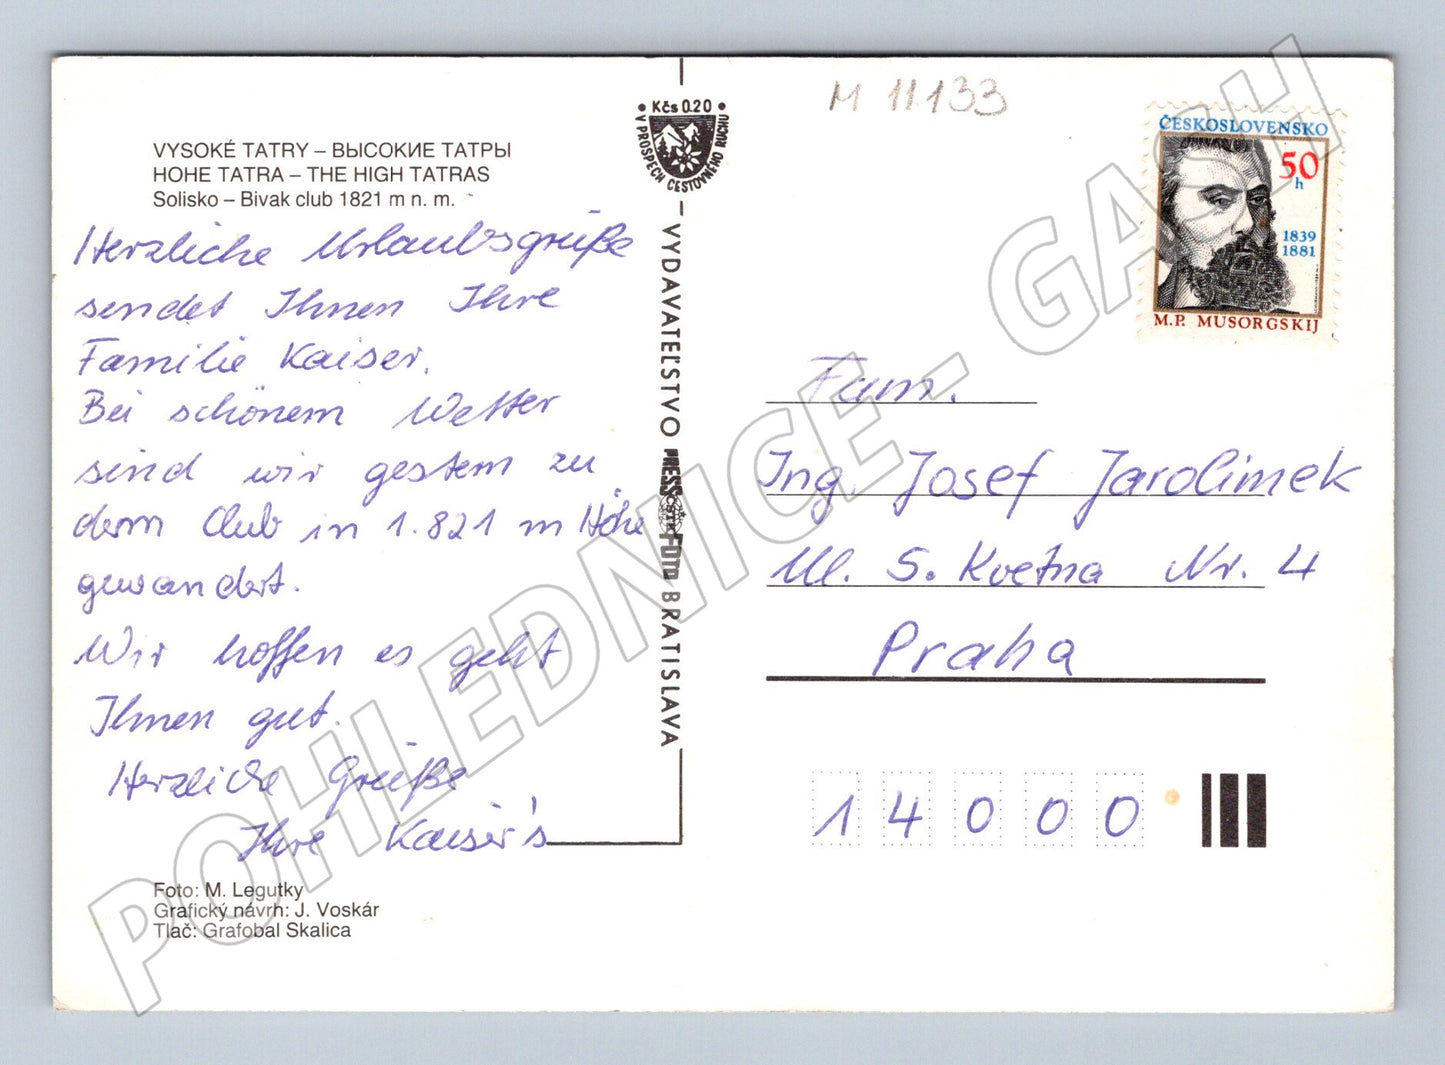 VYSOKÉ TATRY – ВЫСОКИЕ ТАТРЫ
HOHE TATRA – THE HIGH TATRAS
Solisko – Bivak club 1821 m n. m.
Herzliche Urlaubsgrüße
sendet Ihnen Ihre
Familie Kaiser.
Bei schönem Wetter
sind wir gestern zu
dem Club in 1.821 m Höhe
gewandert.
Wir hoffen es geht
Ihnen gut.
Herzliche Grüße
Ihre Kaiser's
Foto: M. Legutky
Grafický návrh: J. Voskár
Tlač: Grafobal Skalica
• Kčs 0.20 •
V PROSPECH CESTOVNÉHO RUCHU
VYDAVATEĽSTVO PRESSFOTO BRATISLAVA
ČSTK
M 11133
ČESKOSLOVENSKO
50
h
1839
1881
M.P. MUSORGSKIJ
Fam.
Ing. Josef Jarolimek
Ul. 5. Kvetna Nr. 4
Praha
14000
POHLEDNICE - GASH